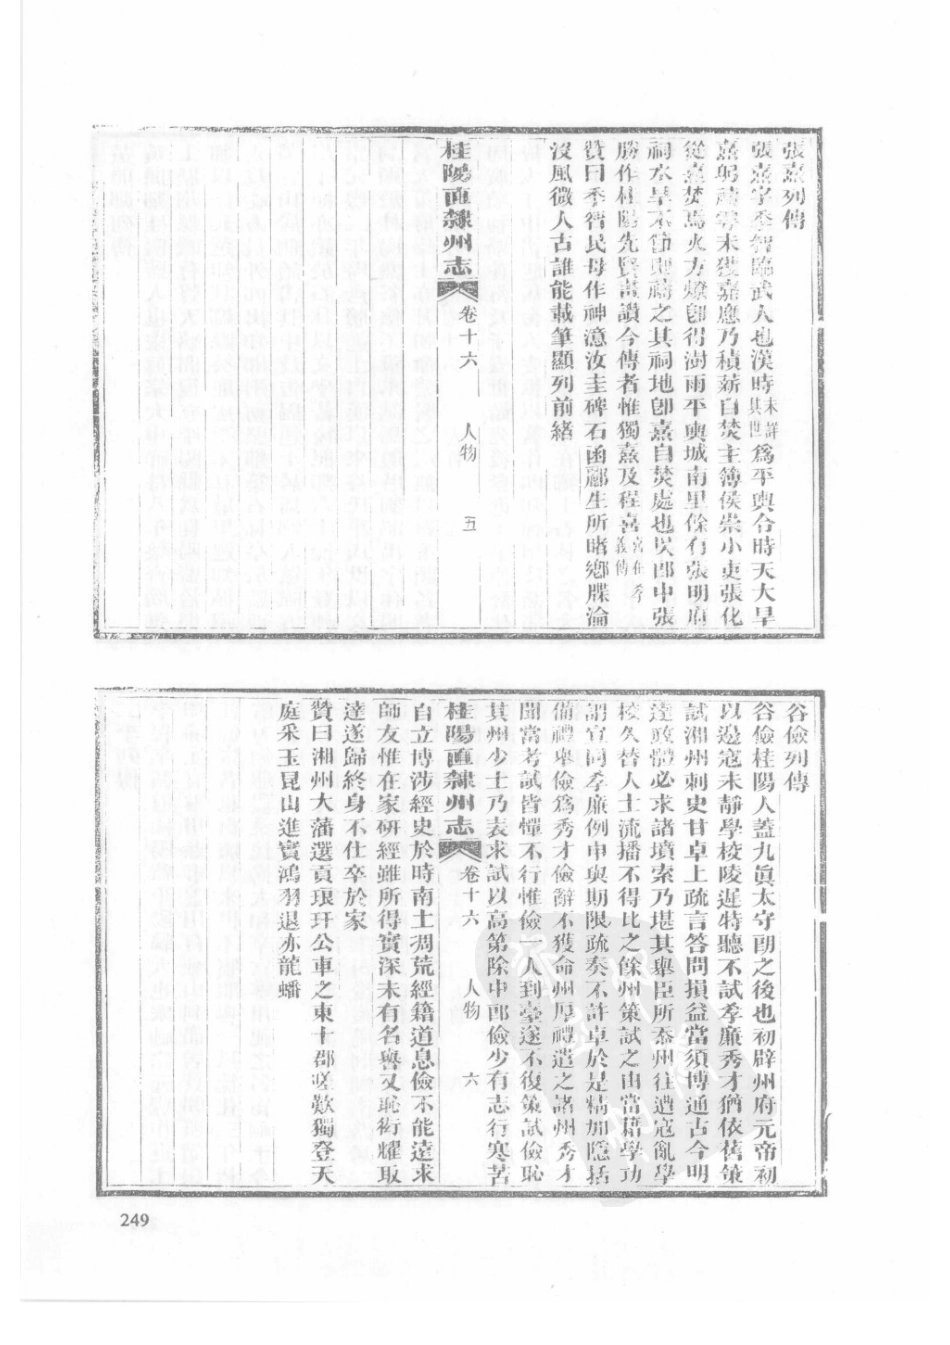 張熹列傳
張熹字季智臨武人也漢時未詳其世爲平輿令時天大旱
熹躬禱雩未獲嘉應乃積薪自焚主簿侯崇小吏張化
從熹焚焉火方燎卽得澍雨平輿城南里餘有張明府
祠水旱不節則禱之其祠地卽熹自焚處也以郎中張
勝作桂陽先賢畫讚今傳者惟獨熹及程喜喜在孝義傳
贊曰季智民母作神濾汝圭碑石函酈生所睹鄉牒淪
沒風微人古誰能載筆顯列前緒
桂陽直隸州志 卷十六 人物 五
谷儉列傳
谷儉桂陽人蓋九眞太守朗之後也初辟州府元帝初
以邊寇未靜學校陵遲特聽不試孝廉秀才猶依舊策
試湘州刺史甘卓上疏言答問損益當須博通古今明
達政體必求諸墳索乃堪其舉臣所忝州往遭寇亂學
校久替人士流播不得比之餘州策試之由當藉學功
謂宜同孝廉例申與期限疏奏不許卓於是精加隱括
備禮舉儉爲秀才儉辭不獲命州厚禮遣之諸州秀才
聞當考試皆憚不行惟儉一人到臺遂不復策試儉恥
其州少士乃表求試以高第除中郎儉少有志行寒苦
桂陽直隸州志 卷十六 人物 六
自立博涉經史於時南土凋荒經籍道息儉不能遠求
師友惟在家研經雖所得實深未有名譽又恥衒耀取
達遂歸終身不仕卒於家
贊曰湘州大藩選貢琅玕公車之東十郡咳歎獨登天
庭采玉昆山進實鴻羽退亦龍蟠
249